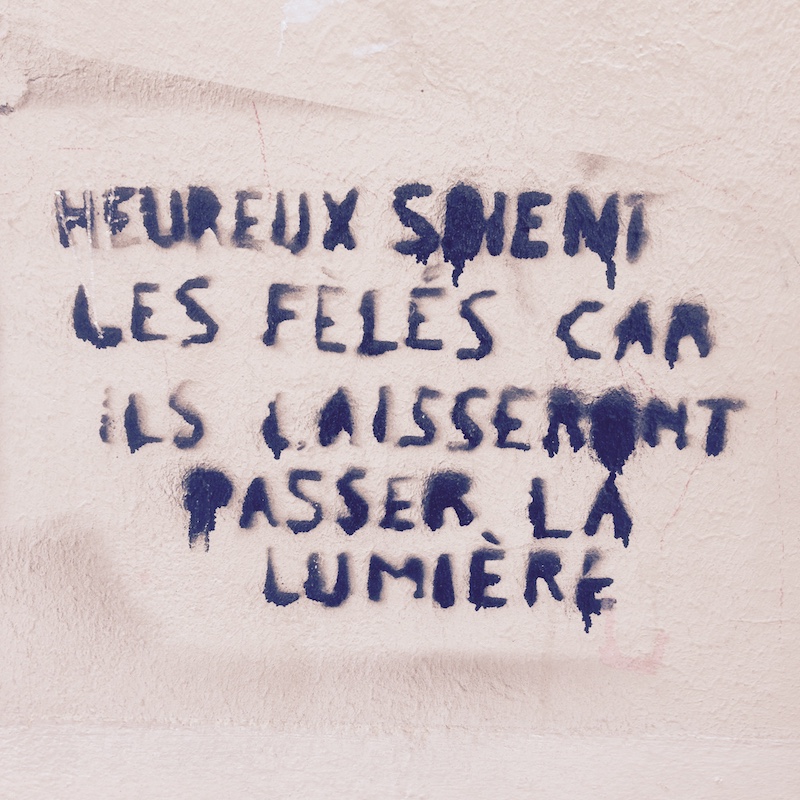 HEUREUX SOIENT
LES FÈLÉS CAR
iLS LAISSERONT
PASSER LA
LUMIÈRE